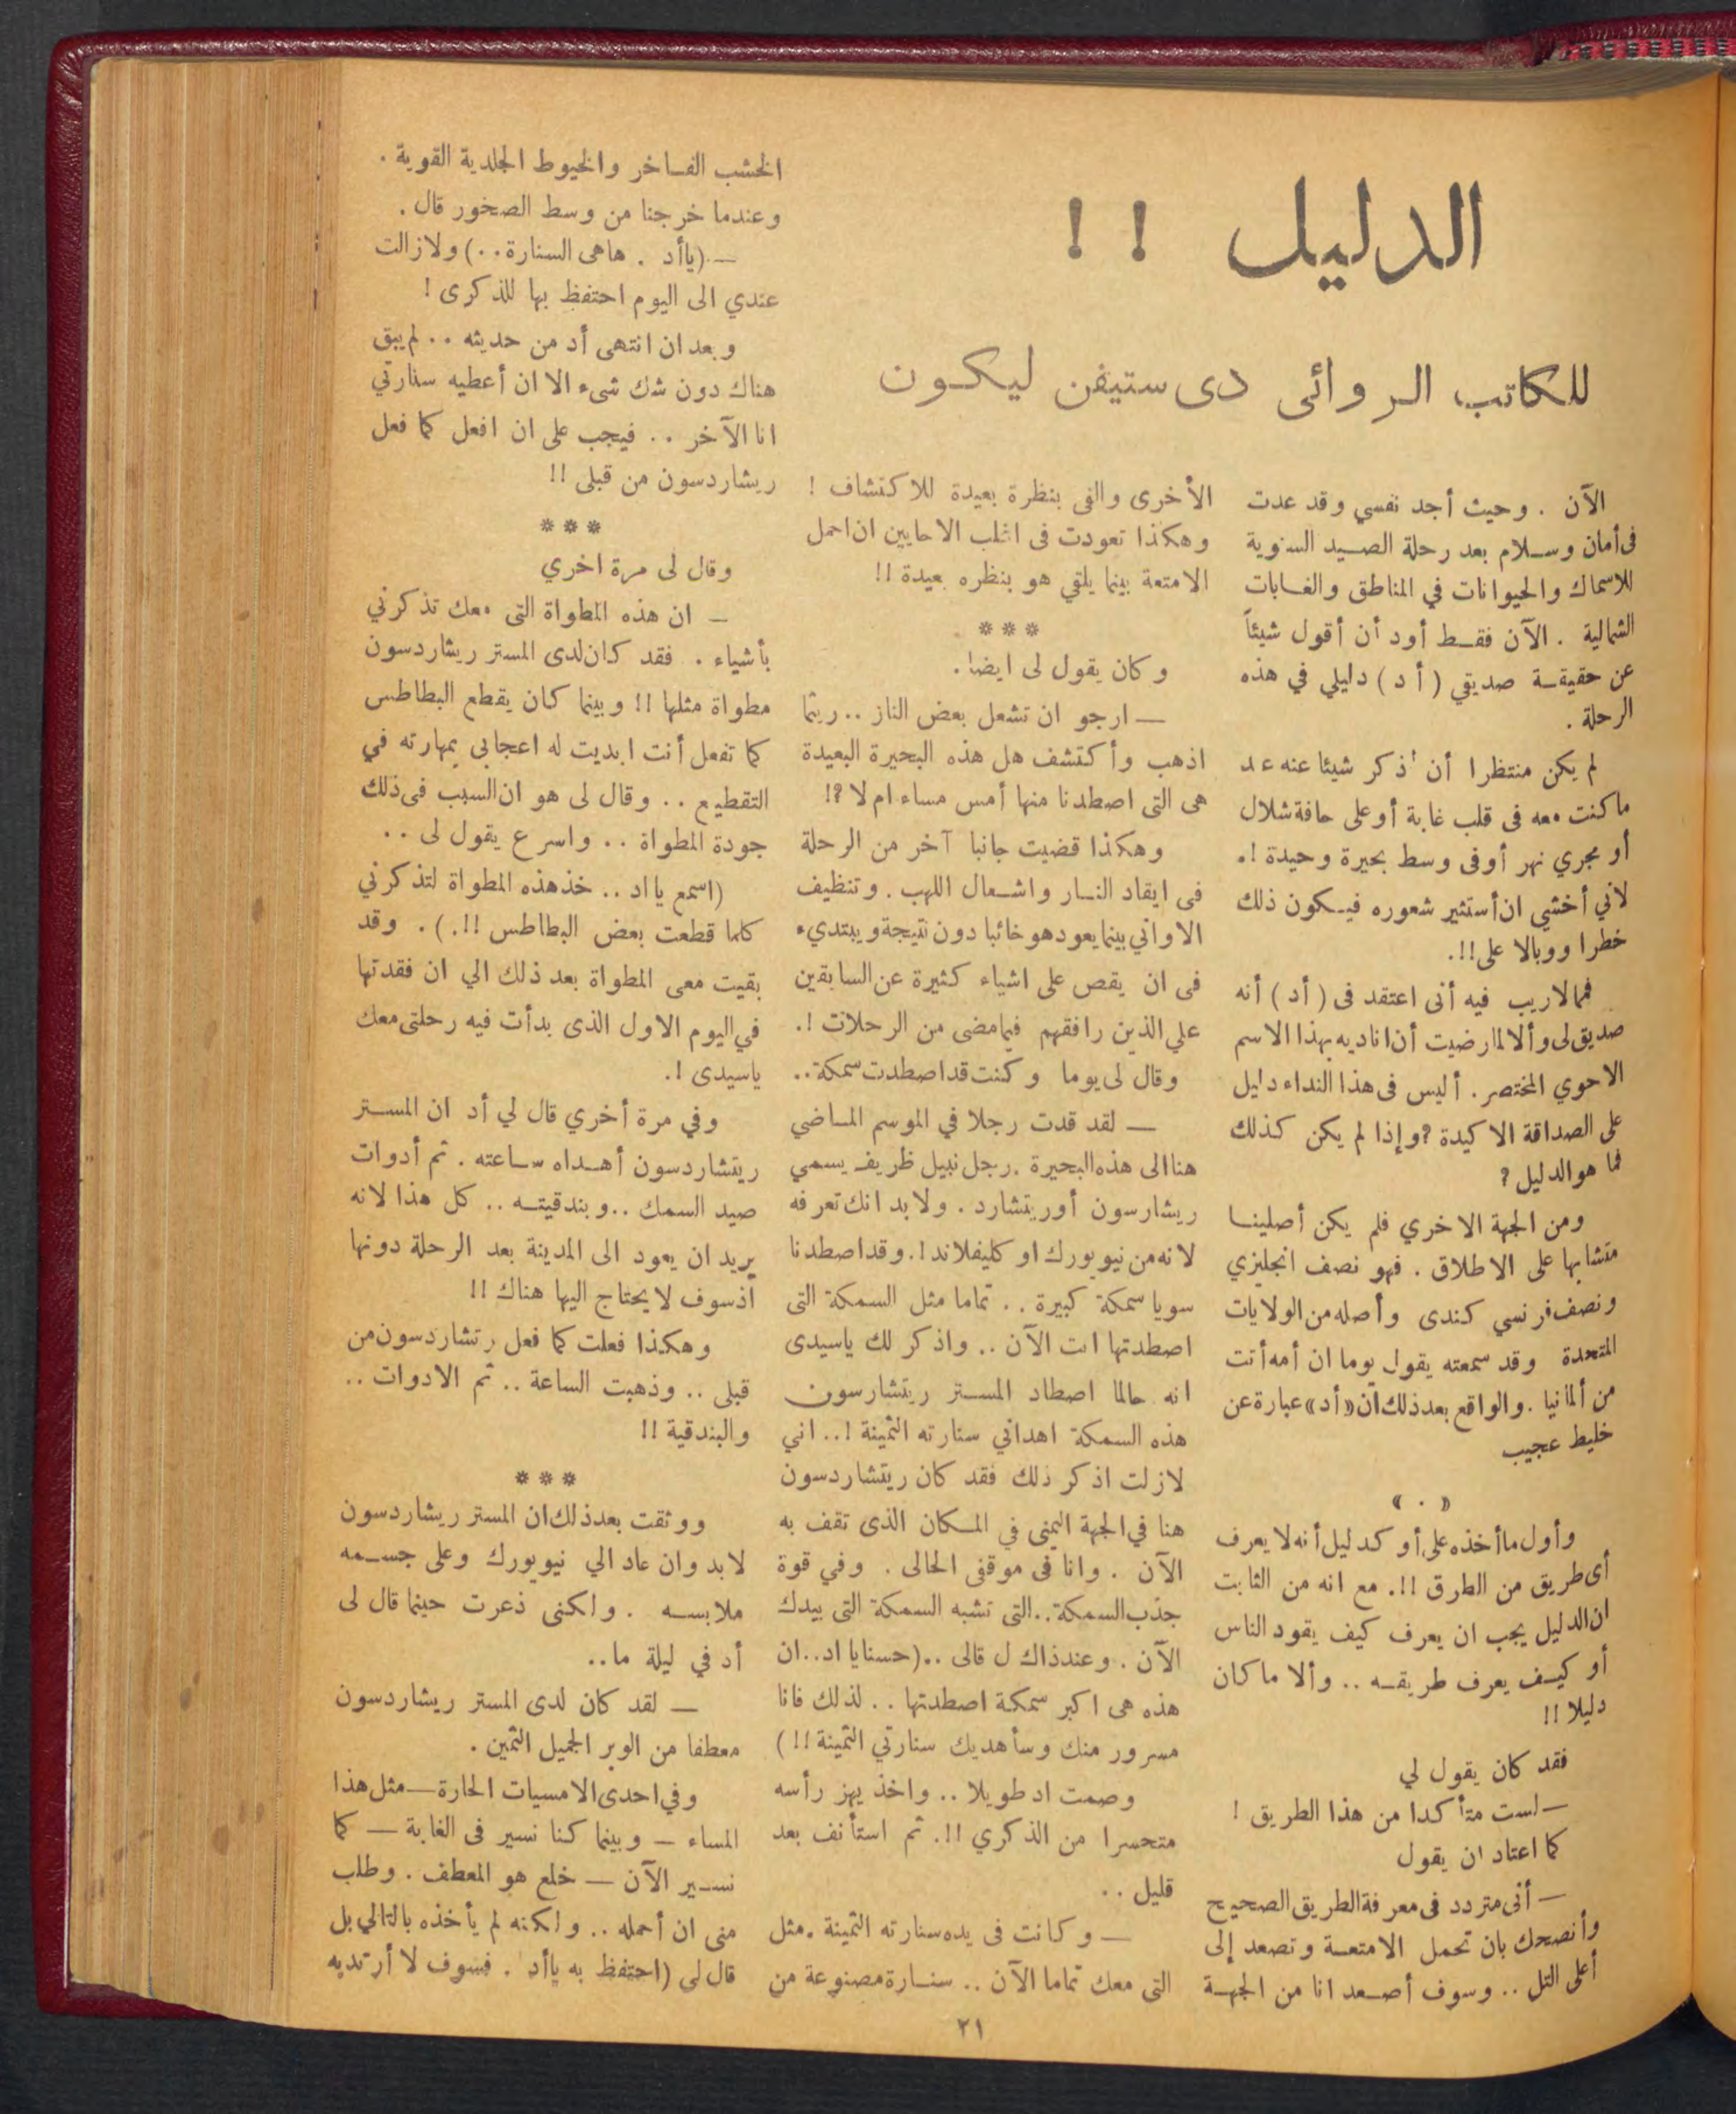 الدليل ! !
للكاتب الروائى دى ستيفن ليكون
الآن . وحيث أجد نفسي وقد عدت
فى أمان وسلام بعد رحلة الصيد السنوية
للاسماك والحيوانات في المناطق والغابات
الشمالية . الآن فقط أود أن أقول شيئاً
عن حقيقة صديقي ( أد ) دليلي في هذه
الرحلة .
لم يكن منتظرا أن أذكر شيئا عنه عند
ما كنت معه فى قلب غابة أو على حافة شلال
أو مجري نهر أو فى وسط بحيرة وحيدة !.
لاني أخشي ان أستثير شعوره فيكون ذلك
خطرا ووبالا على !!.
فمالاريب فيه أنى اعتقد فى ( أد ) أنه
صديق لى وألا لما رضيت أن اناديه بهذا الاسم
الاحوي المختصر . أليس فى هذا النداء دليل
على الصداقة الاكيدة ? وإذا لم يكن كذلك
فما هو الدليل ?
ومن الجهة الاخري فلم يكن أصلينا
متشابها على الاطلاق . فهو نصف انجليزي
ونصف فرنسي كندى وأصله من الولايات
المتحدة وقد سمعته يقول يوما ان أمه أتت
من ألمانيا . والواقع بعد ذلك أن «أد» عبارة عن
خليط عجيب
« . »
وأول ما أخذه على أو كد ليل أنه لا يعرف
أى طريق من الطرق !!. مع انه من الثابت
ان الدليل يجب ان يعرف كيف يقود الناس
أو كيف يعرف طريقه .. وألا ما كان
دليلا !!
فقد كان يقول لي
— لست متأكدا من هذا الطريق !
كما اعتاد ان يقول
— أنى متردد فى معرفة الطريق الصحيح
وأنصحك بان تحمل الامتعة وتصعد إلى
أعلى التل .. وسوف أصعد انا من الجهة
الأخرى والفى بنظرة بعيدة للاكتشاف !
وهكذا تعودت فى اغلب الاحايين ان احمل
الامتعة بينما يلتي هو بنظره بعيدة !!
***
وكان يقول لى ايضا .
— ارجو ان تشعل بعض النار .. ريثما
اذهب وأكتشف هل هذه البحيرة البعيدة
هى التى اصطدنا منها أمس مساء ام لا ?!
وهكذا قضيت جانبا آخر من الرحلة
فى ايقاد النار واشعال اللهب . وتنظيف
الاوانى بينما يعود هو خائبا دون نتيجة ويبتديء
فى ان يقص على اشياء كثيرة عن السابقين
علي الذين رافقهم فيما مضى من الرحلات !.
وقال لى يوما وكنت قد اصطدت سمكة ..
— لقد قدت رجلا في الموسم الماضي
هنا الى هذه البحيرة . رجل نبيل ظريف يسمي
ريشارسون أو ريتشارد . ولا بد انك تعرفه
لانه من نيويورك او كليفلاند !. وقد اصطدنا
سويا سمكة كبيرة .. تماما مثل السمكة التى
اصطدتها انت الآن .. واذكر لك ياسيدى
انه حالما اصطاد المستر ريتشارسون
هذه السمكة اهدانى سنارته الثمينة !.. اني
لازلت اذكر ذلك فقد كان ريتشاردسون
هنا في الجهة اليمنى في المكان الذى تقف به
الآن . وانا فى موقفى الحالى . وفي قوة
جذب السمكة .. التى تشبه السمكة التى بيدك
الآن . وعندذاك ل قالى .. (حسنايا اد .. ان
هذه هى اكبر سمكة اصطدتها .. لذلك فانا
مسرور منك وسأهديك سنارتي الثمينة !!)
وصمت اد طويلا .. واخذ يهز رأسه
متحسرا من الذكري !!. ثم استأنف بعد
قليل ..
— وكانت فى يده سنارته الثمينة . مثل
التى معك تماما الآن .. سنارة مصنوعة من
الخشب الفاخر والخيوط الجلدية القوية .
وعندما خرجنا من وسط الصخور قال .
— (ياأد . هاهى السنارة ..) ولازالت
عندي الى اليوم احتفظ بها للذكرى !
وبعد ان انتهى أد من حديثه .. لم يبق
هناك دون شك شىء الا ان أعطيه سنارتي
انا الآخر .. فيجب على ان افعل كما فعل
ريشاردسون من قبلى !!
***
وقال لى مرة اخري
— ان هذه المطواة التى معك تذكرني
بأشياء . فقد كان لدى المستر ريشاردسون
مطواة مثلها !! وبينما كان يقطع البطاطس
كما تفعل أنت ابديت له اعجابى بمهارته في
التقطيع .. وقال لى هو ان السبب فى ذلك
جودة المطواة .. واسرع يقول لى ..
(اسمع يا اد .. خذ هذه المطواة لتذكرني
كلما قطعت بعض البطاطس !!.) . وقد
بقيت معى المطواة بعد ذلك الي ان فقدتها
في اليوم الاول الذى بدأت فيه رحلتى معك
ياسيدى !.
وفي مرة أخري قال لي أد ان المستر
ريتشاردسون أهداه ساعته . ثم أدوات
صيد السمك .. وبندقيته .. كل هذا لانه
يريد ان يعود الى المدينة بعد الرحلة دونها
أذ سوف لا يحتاج اليها هناك !!
وهكذا فعلت كما فعل رتشاردسون من
قبلى .. وذهبت الساعة .. ثم الادوات ..
والبندقية !!
***
ووثقت بعد ذلك ان المستر ريشاردسون
لا بد وان عاد الي نيويورك وعلى جسمه
ملابسه . ولكنى ذعرت حينما قال لى
أد في ليلة ما ..
— لقد كان لدى المستر ريشاردسون
معطفا من الوبر الجميل الثمين .
وفي احدى الامسيات الحارة — مثل هذا
المساء — وبينما كنا نسير فى الغابة — كما
نسير الآن — خلع هو المعطف . وطلب
منى ان أحمله .. ولكنه لم يأخذه بالتالي بل
قال لى (احتفظ به ياأد . فسوف لا أرتديه
٢١